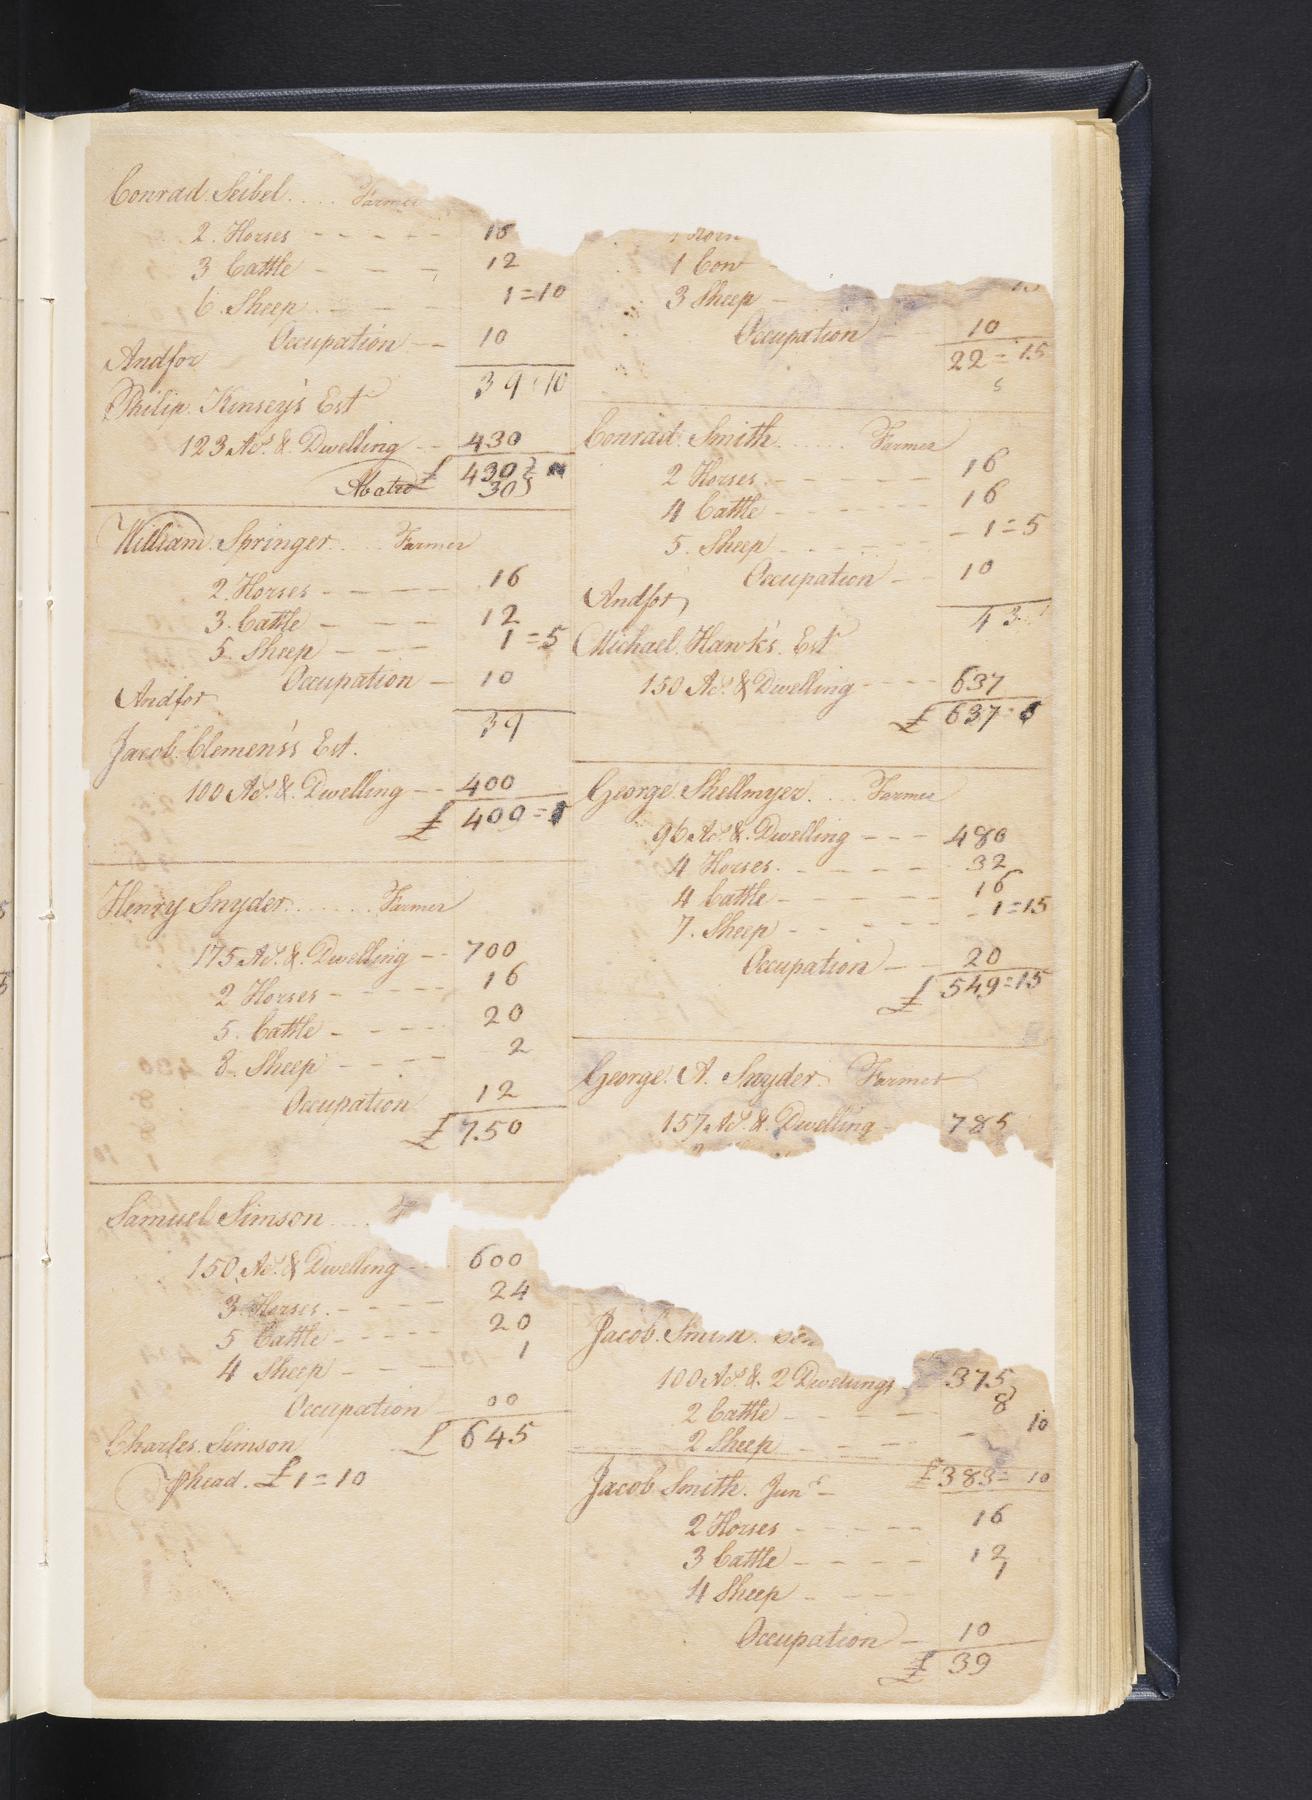 Conrad Seibel .... Farmer
2 Horses - - - - - 16
3 Cattle - - - - 12
6 Sheep - - - 1=10
Occupation -- 10
And for 39:10
Philip Kinsey's Est
123 Acs. & Dwelling -- 430
£ 430
Abated 30
William Springer .... Farmer
2 Horses - - - - 16
3 Cattle - - - - 12
5 Sheep - - - 1=5
Occupation - 10
And for 39
Jacob Clemens's Est.
100 Acs. & Dwelling -- 400
£ 400=
Henry Snyder ...... Farmer
175 Acs. & Dwelling -- 700
2 Horses - - - - 16
5 Cattle - - - - 20
8 Sheep - - - 2
Occupation 12
£ 750
Samuel Simson ....
150 Acs. & Dwelling --- 600
3 Horses - - - - 24
5 Cattle - - - - - 20
4 Sheep - - - 1
Occupation 00
£ 645
Charles Simson
phead. £1=10
1 Cow -
3 Sheep -
Occupation - 10
22=15
Conrad Smith ..... Farmer
2 Horses - - - - - 16
4 Cattle - - - - - - 16
5 Sheep - - - - - 1=5
Occupation -- 10
And for 43
Michael Hawk's Est
150 Acs. & Dwelling ---- 637
£ 637=
George Shellmyer .... Farmer
96 Acs. & Dwelling - - - 480
4 Horses - - - - - 32
4 Cattle - - - - - 16
7 Sheep - - - - - 1=15
Occupation - - 20
£ 549=15
George A. Snyder Farmer
157 Acs. & Dwelling - 785
Jacob
100 Acs. & 2 Dwellings - 375
2 Cattle - - - - 8
2 Sheep - - - - - 10
£383= 10
Jacob Smith Junr -
2 Horses - - - - - 16
3 Cattle - - - - - 12
4 Sheep - - - - 1
Occupation - 10
£ 39